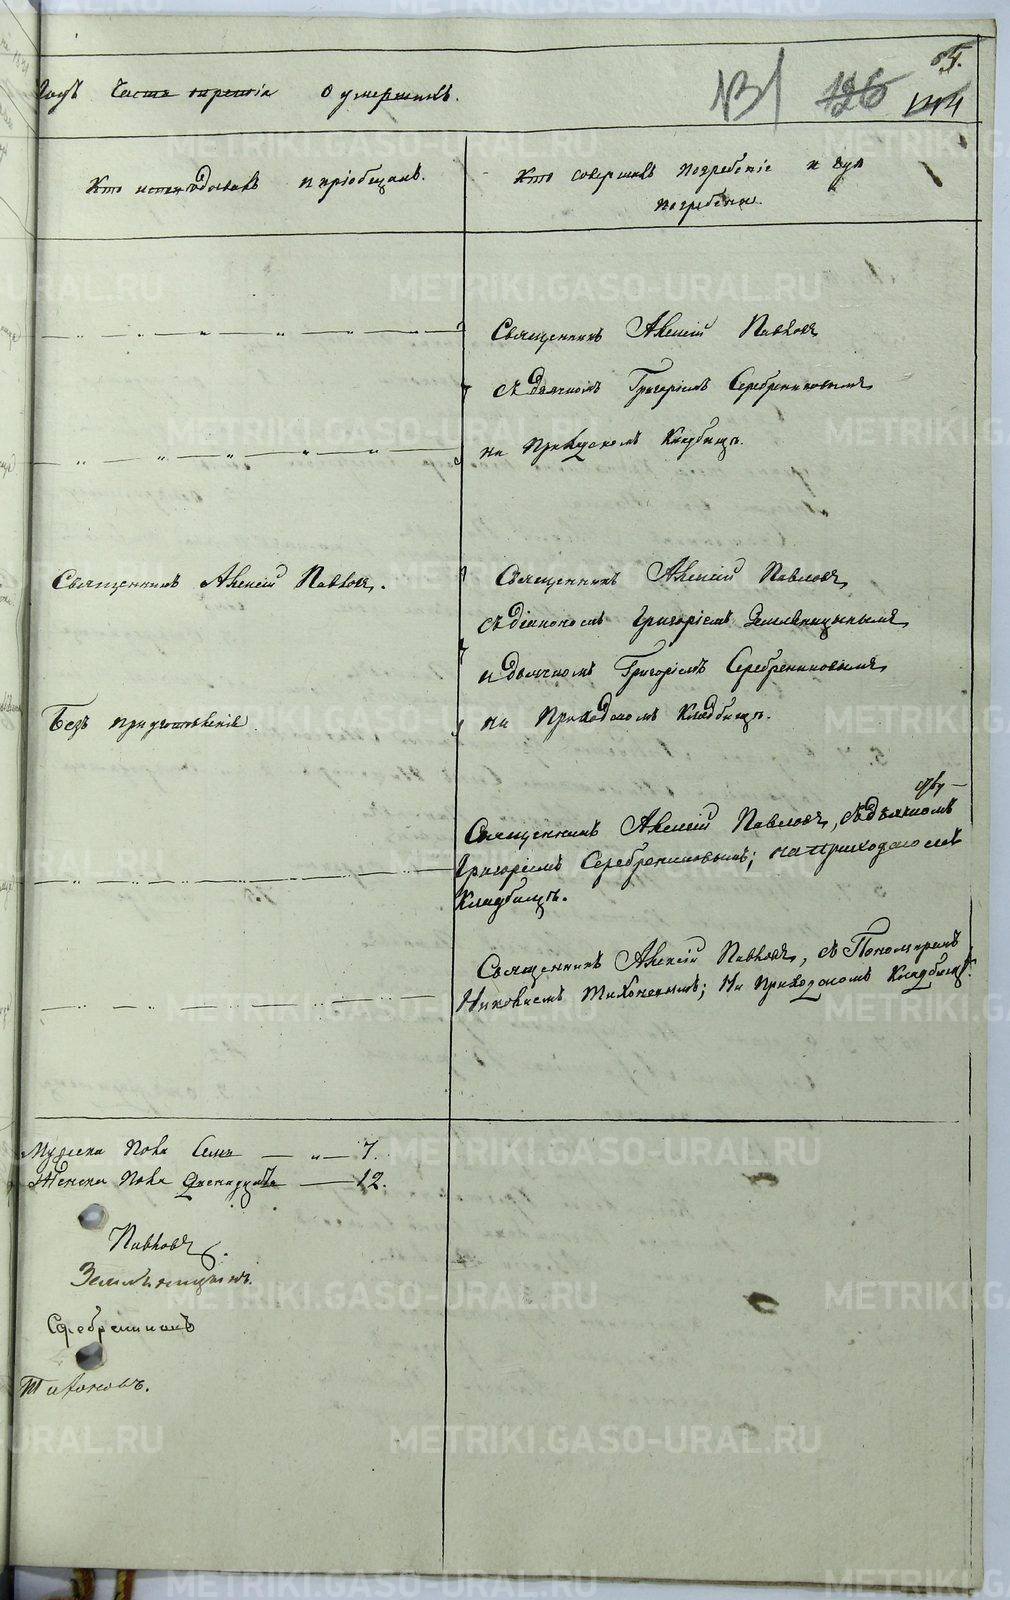 54.
131 126 144
Годъ Часть третія о умершихъ.
Кто исповѣдовалъ и пріобщалъ.
Кто совершалъ погребеніе и гдѣ
погребены.
Священникъ Алексій Павловъ
съ дьячкомъ Григоріемъ Серебренниковымъ
на Приходскомъ Кладбищѣ.
Священникъ Алексій Павловъ.
Священникъ Алексій Павловъ,
съ діакономъ Григоріемъ Земляницынымъ
и дьячкомъ Григоріемъ Серебренниковымъ
Безъ приуготовленія.
на Приходскомъ Кладбищѣ.
Священникъ Алексій Павловъ, съ дьячкомъ
Григоріемъ Серебренниковымъ; на приходскомъ
Кладбищѣ.
Священникъ Алексій Павловъ, съ Пономаремъ
Тихоновымъ; на Приходскомъ Кладбищѣ.
Мужеска Пола Семь — „ — 7.
Женска Пола Двенадцать — 12.
Павловъ.
Земляницынъ.
Серебренниковъ
Тихоновъ.
METRIKI.GASO-URAL.RU